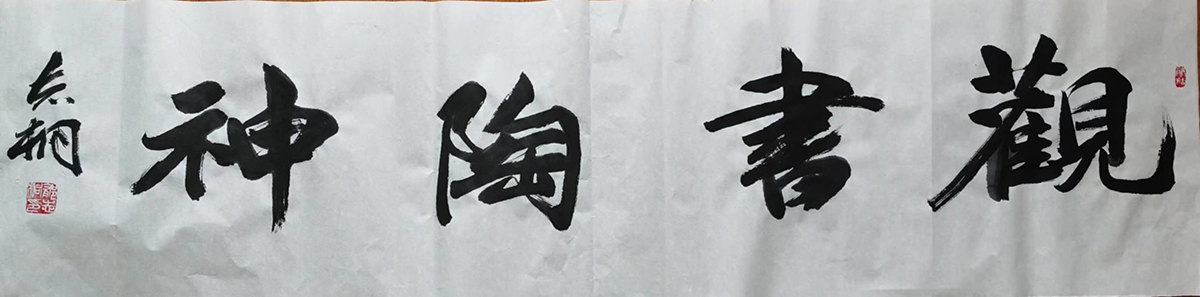 觀書陶神
志桐